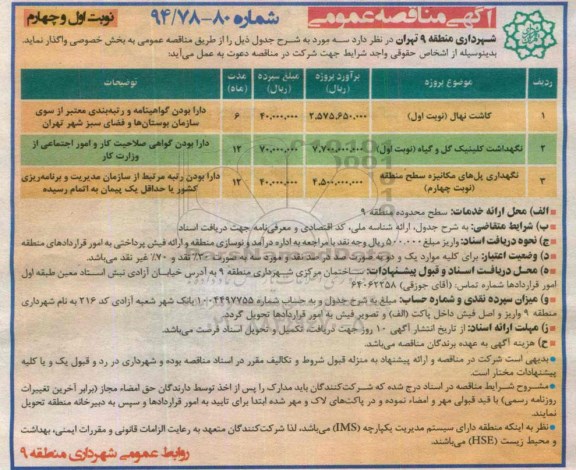 آگهی مناقصه عمومی
شماره ۸۰-۹۴/۷۸
نوبت اول و چهارم
شهرداری منطقه ۹ تهران در نظر دارد سه مورد به شرح جدول ذیل را از طریق مناقصه عمومی به بخش خصوصی واگذار نماید.
بدینوسیله از اشخاص حقوقی واجد شرایط جهت شرکت در مناقصه دعوت به عمل می‌آید:
ردیف موضوع پروژه برآورد پروژه (ریال) مبلغ سپرده (ریال) مدت (ماه) توضیحات
۱ کاشت نهال (نوبت اول) ۲،۵۷۵،۶۵۰،۰۰۰ ۴۰،۰۰۰،۰۰۰ ۶ دارا بودن گواهینامه و رتبه‌بندی معتبر از سوی
سازمان بوستان‌ها و فضای سبز شهر تهران
۲ نگهداشت کلینیک گل و گیاه (نوبت اول) ۷،۷۰۰،۰۰۰،۰۰۰ ۷۰،۰۰۰،۰۰۰ ۱۲ دارا بودن گواهی صلاحیت کار و امور اجتماعی از
وزارت کار
۳ نگهداری پل‌های مکانیزه سطح منطقه (نوبت چهارم) ۴،۵۰۰،۰۰۰،۰۰۰ ۴۰،۰۰۰،۰۰۰ ۱۲ دارا بودن رتبه مرتبط از سازمان مدیریت و برنامه‌ریزی
کشور یا حداقل یک پیمان به اتمام رسیده
الف) محل ارائه خدمات: سطح محدوده منطقه ۹
ب) شرایط متقاضی: به شرح جدول، ارائه شناسه ملی، کد اقتصادی و معرفی‌نامه جهت دریافت اسناد
ج) نحوه دریافت اسناد: واریز مبلغ ۵۰۰،۰۰۰ ریال وجه نقد با مراجعه به اداره درآمد و نوسازی منطقه و ارائه فیش پرداختی به امور قراردادهای منطقه
د) وضعیت اعتبار: برای کلیه موارد یک و دو به صورت صد درصد نقد و مورد سه به صورت ۳۰٪ نقد و ۷۰٪ غیر نقد می‌باشد.
ه) محل دریافت اسناد و قبول پیشنهادات: ساختمان مرکزی شهرداری منطقه ۹ به آدرس خیابان آزادی نبش استاد معین طبقه اول
امور قراردادها شماره تماس: (آقای جوزقی) ۶۴۰۶۲۲۵۸
و) میزان سپرده نقدی و شماره حساب: مبلغ به شرح جدول و به حساب شماره ۱۰۰۲۴۴۹۷۷۵۵ بانک شهر شعبه آزادی کد ۲۱۶ به نام شهرداری
منطقه ۹ واریز و اصل فیش داخل پاکت (الف) و تصویر فیش به امور قراردادها تحویل گردد.
ز) مهلت ارائه اسناد: از تاریخ انتشار آگهی ۱۰ روز جهت دریافت تکمیل و تحویل اسناد فرصت می‌باشد.
ح) هزینه آگهی به عهده برندگان مناقصه می‌باشد.
بدیهی است شرکت در مناقصه و ارائه پیشنهاد به منزله قبول شروط و تکالیف مقرر در اسناد مناقصه بوده و شهرداری در رد و قبول یک و یا کلیه
پیشنهادات مختار است.
مشروح شرایط مناقصه در اسناد درج شده که شرکت‌کنندگان باید مدارک را پس از اخذ توسط دارندگان حق امضاء مجاز (برابر آخرین تغییرات
روزنامه رسمی) با قید قبولی مهر و امضاء نموده و در پاکت‌های لاک و مهر شده ابتدا برای تایید به امور قراردادها و سپس به دبیرخانه منطقه تحویل
نمایند.
نظر به اینکه منطقه دارای سیستم مدیریت یکپارچه (IMS) می‌باشد، لذا شرکت‌کنندگان متعهد به رعایت الزامات قانونی و مقررات ایمنی، بهداشت
و محیط زیست (HSE) می‌باشند.
روابط عمومی شهرداری منطقه ۹